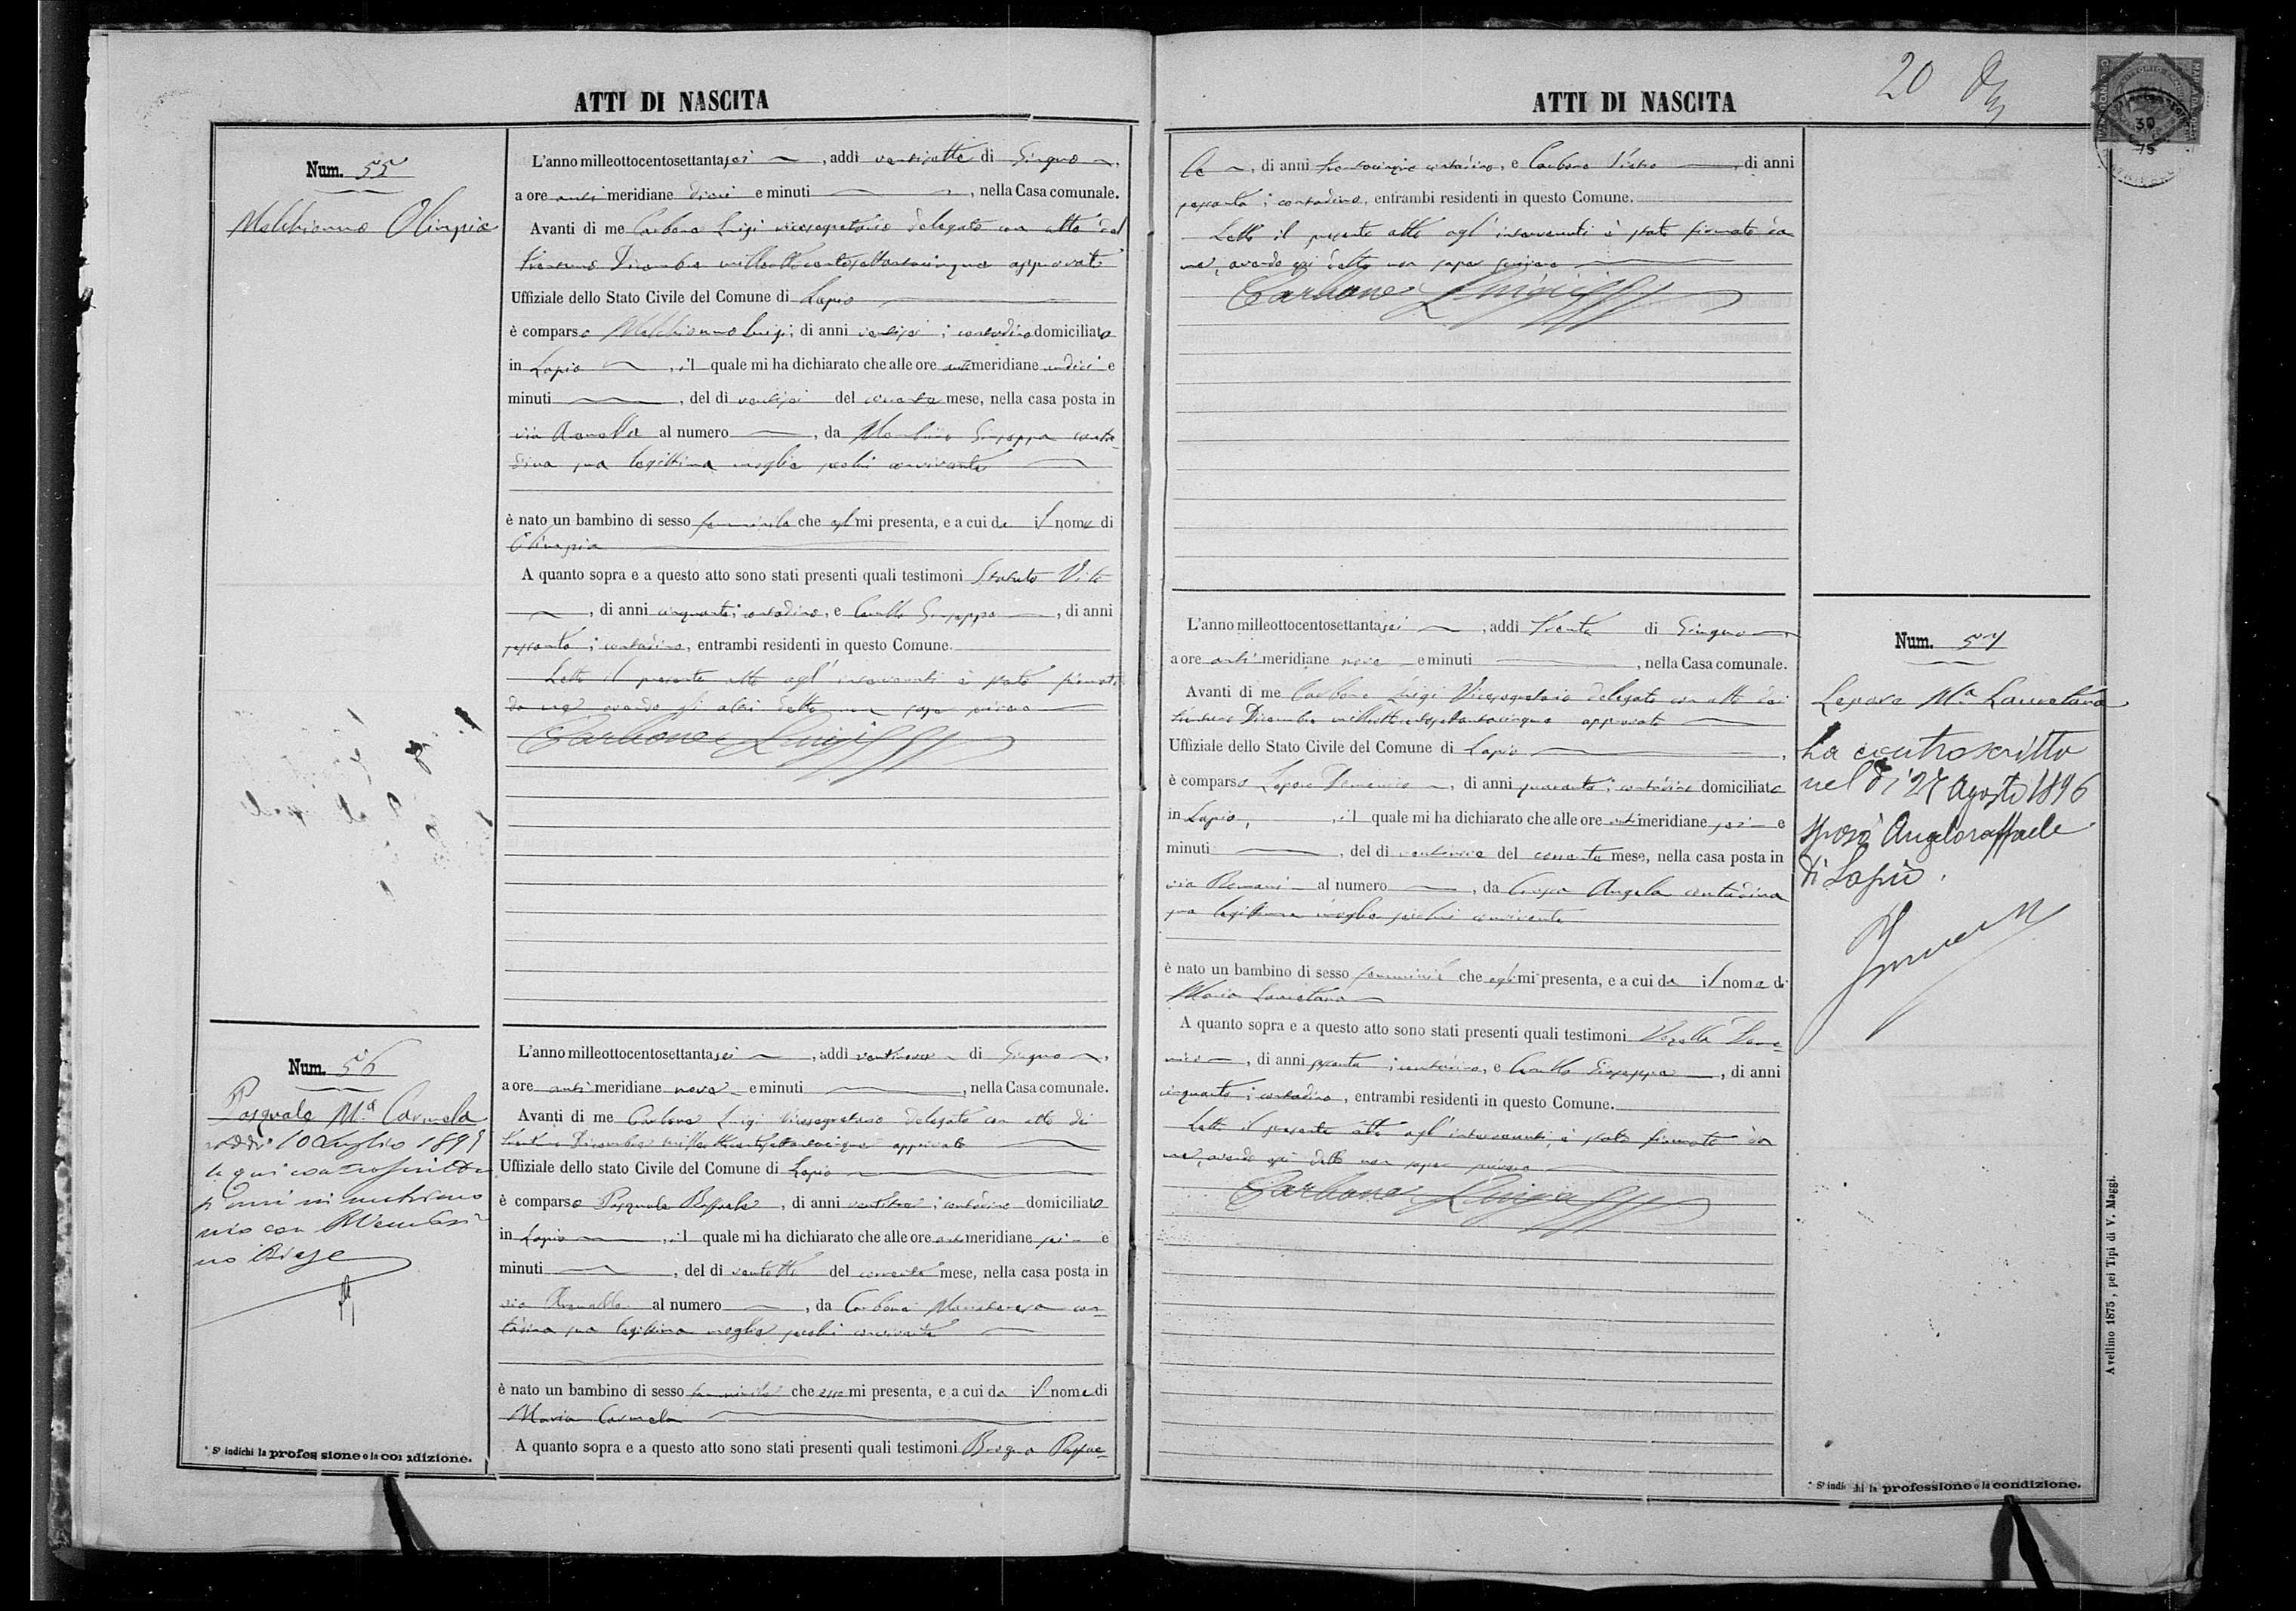 ATTI DI NASCITA
Num. 55
Melchionno Olimpia
L'anno milleottocentosettantasei, addì ventisette di Giugno,
a ore anti meridiane dieci e minuti, nella Casa comunale.
Avanti di me Carbone Luigi vicesegretario delegato con atto del
trentuno Dicembre milleottocentosettantacinque approvato
Uffiziale dello Stato Civile del Comune di Lapio
è comparso Melchionno Luigi, di anni ventisei, contadino domiciliato
in Lapio, il quale mi ha dichiarato che alle ore antimeridiane undici e
minuti, del dì ventisei del corrente mese, nella casa posta in
via al numero, da Giuseppa conta-
dina sua legittima moglie seco lui convivente
è nato un bambino di sesso femminile che egli mi presenta, e a cui da il nome di
Olimpia
A quanto sopra e a questo atto sono stati presenti quali testimoni Vito
, di anni cinquanta, contadino, e Giuseppe, di anni
sessanta, contadino, entrambi residenti in questo Comune.
Letto il presente atto agl'intervenuti è stato firmato
da me, avendo gli altri detto non saper scrivere
Carbone Luigi
Num. 56
Pasquale Mª Carmela
Addì 10 Luglio 189
la qui controscritta
s'unì in matrimo
nio con
no Biage
L'anno milleottocentosettantasei, addì ventinove di Giugno,
a ore anti meridiane nove e minuti, nella Casa comunale.
Avanti di me Carbone Luigi vicesegretario delegato con atto dei
trentuno Dicembre milleottocentosettantacinque approvato
Uffiziale dello stato Civile del Comune di Lapio
è comparso Pasquale Raffaele, di anni ventitre, contadino domiciliato
in Lapio, il quale mi ha dichiarato che alle ore antimeridiane sei e
minuti, del dì ventotto del corrente mese, nella casa posta in
via al numero, da Carbone con-
tadina sua legittima moglie seco lui convivente
è nato un bambino di sesso femminile che esso mi presenta, e a cui da il nome di
Maria Carmela
A quanto sopra e a questo atto sono stati presenti quali testimoni
* Si indichi la professione o la condizione.
ATTI DI NASCITA
20
30
75
le, di anni trentacinque contadino, e Carbone Pietro, di anni
sessanta, contadino, entrambi residenti in questo Comune.
Letto il presente atto agl'intervenuti è stato firmato da
me, avendo essi detto non saper scrivere
Carbone Luigi
Num. 57
Lepore Mª Lauretana
La controscritta
nel dì 27 Agosto 1896
sposò Angeloraffaele
di Lapio.
L'anno milleottocentosettantasei, addì trenta di Giugno,
a ore anti meridiane nove e minuti, nella Casa comunale.
Avanti di me Carbone Luigi Vicesegretario delegato con atto dei
trentuno Dicembre milleottocentosettantacinque approvato
Uffiziale dello Stato Civile del Comune di Lapio,
è comparso Lepore Domenico, di anni quaranta, contadino domiciliato
in Lapio, il quale mi ha dichiarato che alle ore antimeridiane sei e
minuti, del dì ventinove del corrente mese, nella casa posta in
via Romani al numero, da Angela contadina
sua legittima moglie seco lui convivente
è nato un bambino di sesso femminile che egli mi presenta, e a cui da il nome di
Maria Lauretana
A quanto sopra e a questo atto sono stati presenti quali testimoni Dome-
nico, di anni sessanta, contadino, e Giuseppe, di anni
cinquanta, contadino, entrambi residenti in questo Comune.
Letto il presente atto agl'intervenuti, è stato firmato da
me, avendo essi detto non saper scrivere
Carbone Luigi
* Si indichi la professione o la condizione.
Avellino 1875, pei Tipi di V. Maggi.